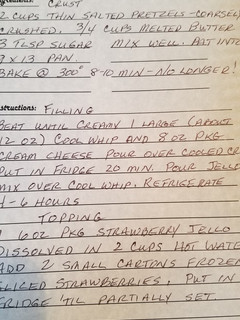 CRUST
2 CUPS THIN SALTED PRETZELS - COARSELY
CRUSHED. 3/4 CUPS MELTED BUTTER
3 TLSP SUGAR MIX WELL. PAT INTO
9 X 13 PAN
BAKE @ 300° 8-10 MIN - NO LONGER!
structions: FILLING
BEAT UNTIL CREAMY 1 LARGE (ABOUT
12 OZ) COOL WHIP AND 8 OZ PKG
CREAM CHEESE POUR OVER COOLED CR
PUT IN FRIDGE 20 MIN. POUR JELLO
MIX OVER COOL WHIP. REFRIGERATE
4-6 HOURS
TOPPING
1 6 OZ PKG STRAWBERRY JELLO
DISSOLVED IN 2 CUPS HOT WATE
ADD 2 SMALL CARTONS FROZE
SLICED STRAWBERRIES. PUT IN
FRIDGE 'TIL PARTIALLY SET.